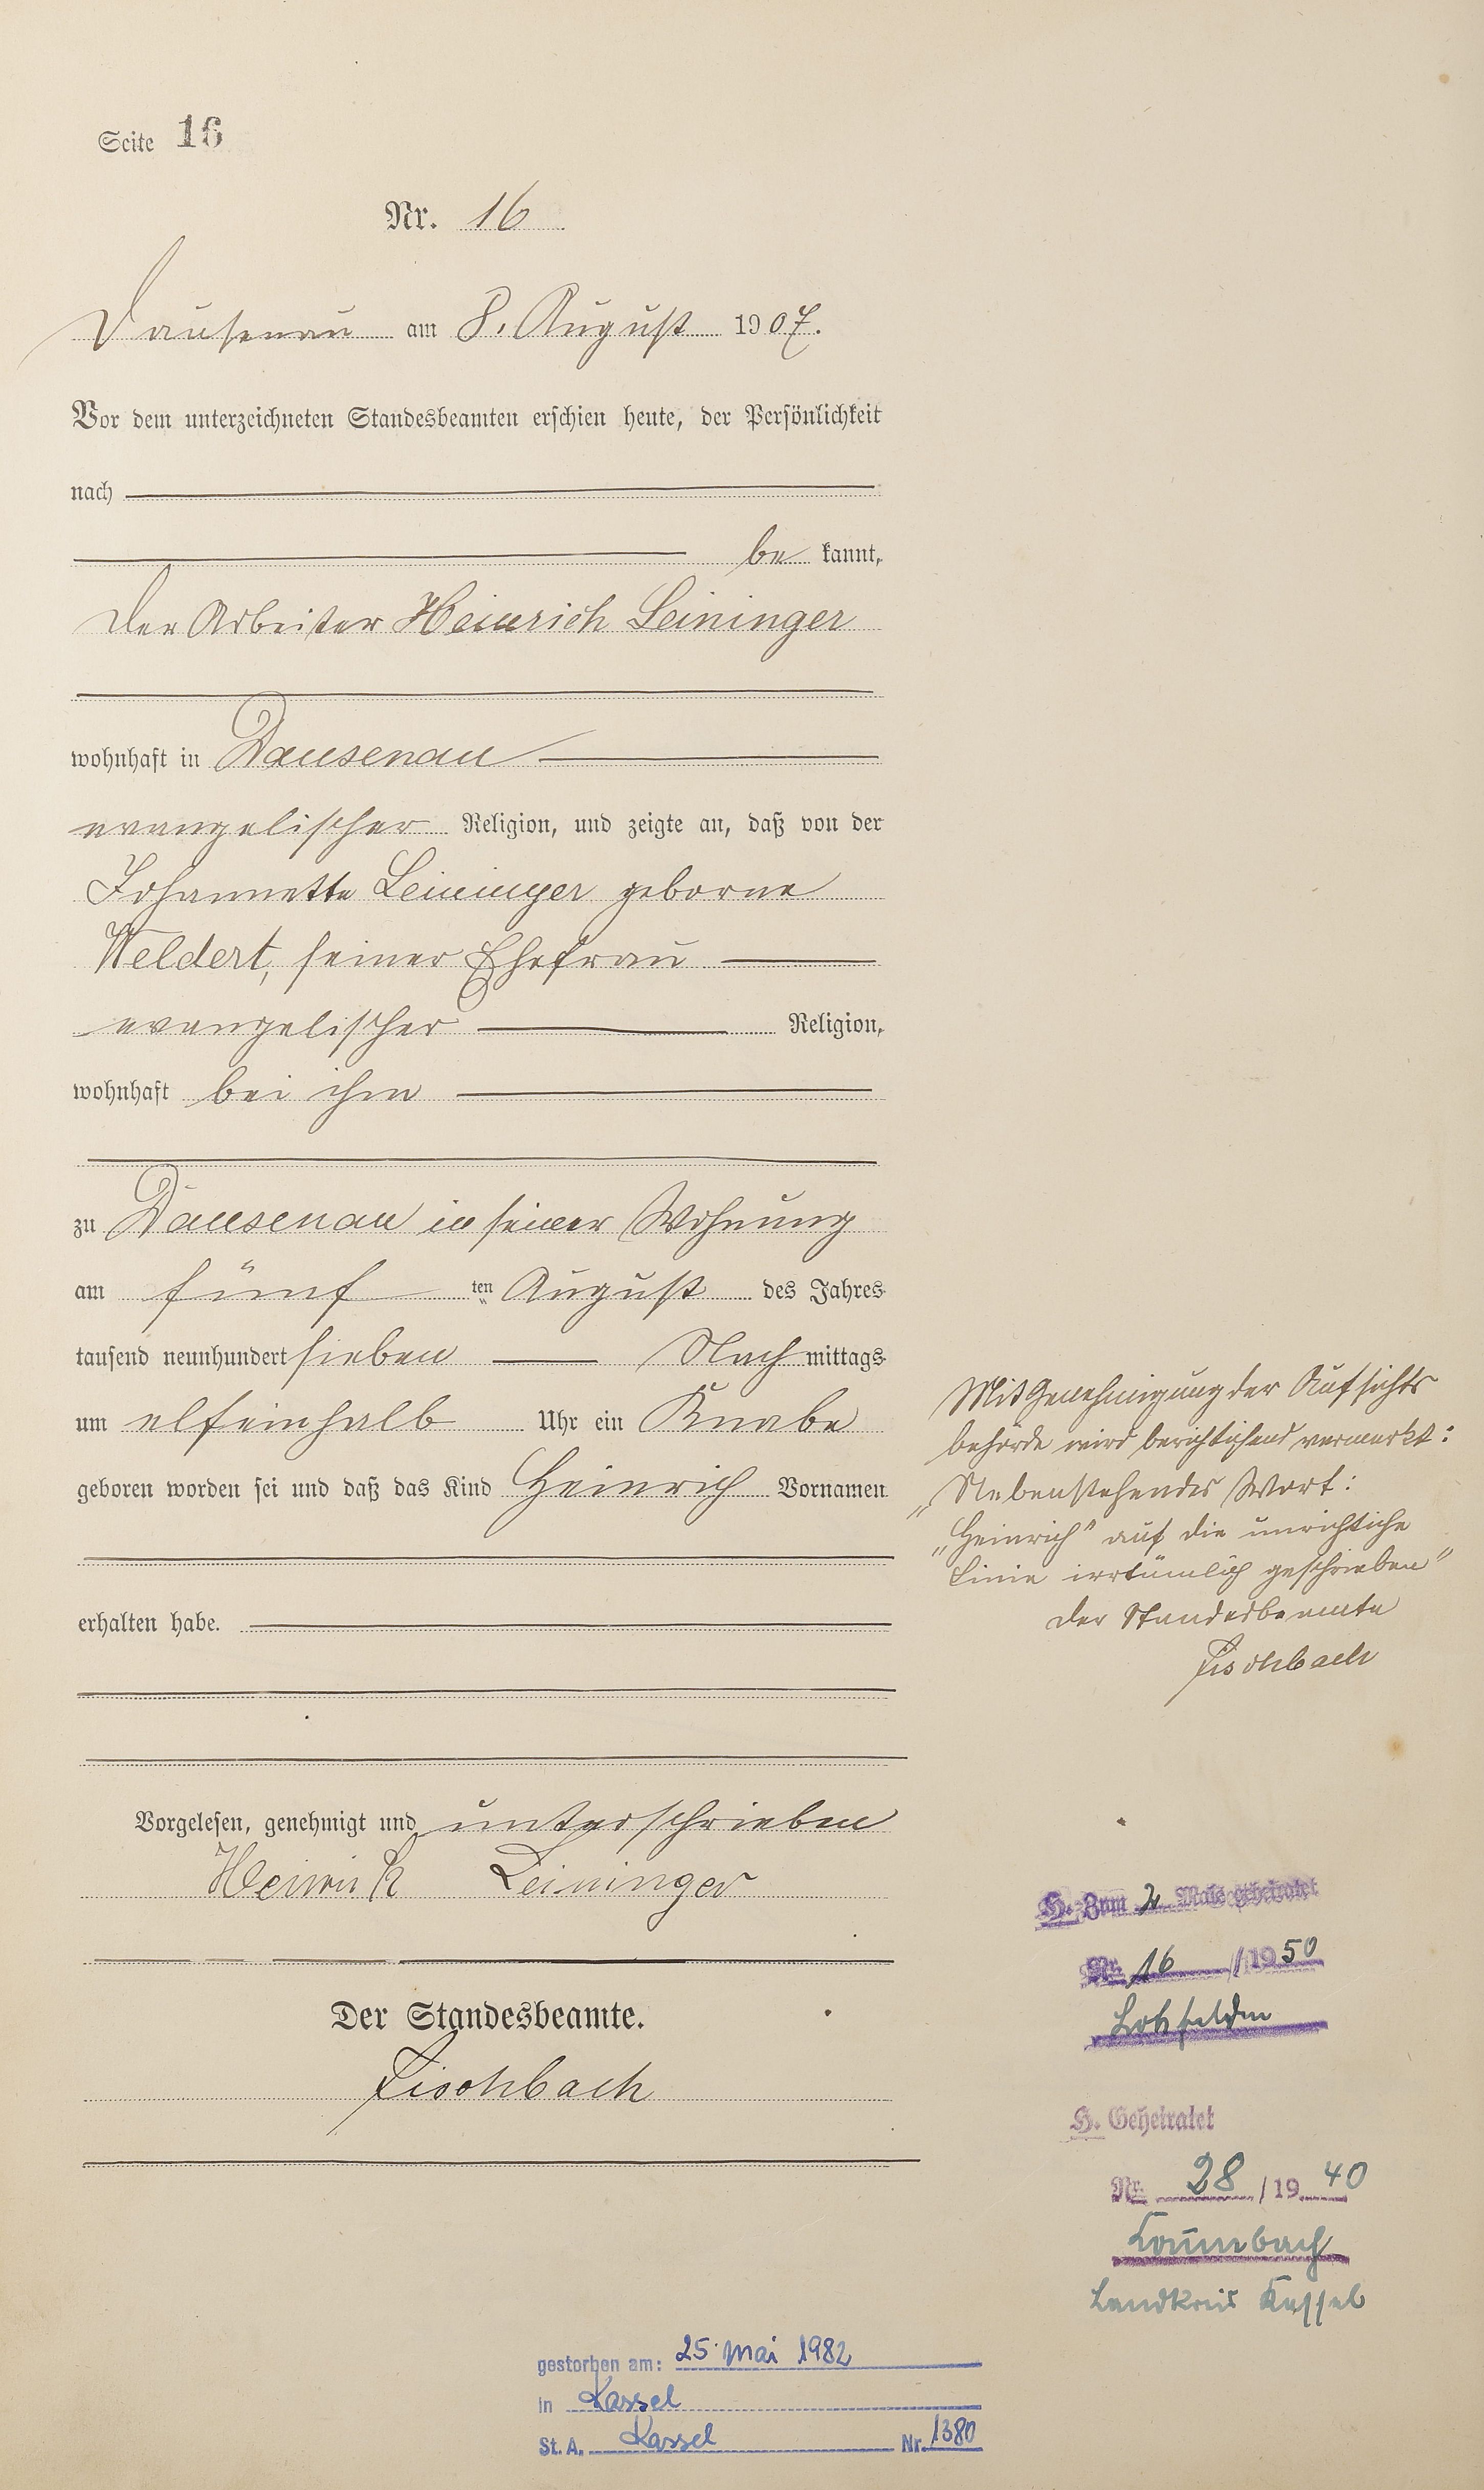 Seite 16
Nr. 16
Dausenau am 8. August 1907.
Vor dem unterzeichneten Standesbeamten erschien heute, der Persönlichkeit
nach
be kannt,
der Arbeiter Heinrich Leininger
wohnhaft in Dausenau
evangelischer Religion, und zeigte an, daß von der
Johannette Leininger geborne
Weldert, seiner Ehefrau
evangelischer Religion,
wohnhaft bei ihm
zu Dausenau in seiner Wohnung
am fünf ten August des Jahres
tausend neunhundert sieben Nachmittags
um elfeinhalb Uhr ein Knabe
geboren worden sei und daß das Kind Heinrich Vornamen
erhalten habe.
Vorgelesen, genehmigt und unterschrieben
Heinrich Leininger
Der Standesbeamte.
Fischbach
Mit Genehmigung der Aufsichts
behörde wird berichtigend vermerkt:
„Nebenstehendes Wort:
„Heinrich" auf die unrichtiche
Linie irrtümlich geschrieben"
Der Standesbeamte
Fischbach
H. Zum 2. Male geheiratet
Nr. 16 /1950
Lohfelden
H. Geheiratet
Nr. 28 /1940
Landkreis Kassel
gestorben am: 25. Mai 1982
in Kassel
St. A. Kassel Nr. 1380